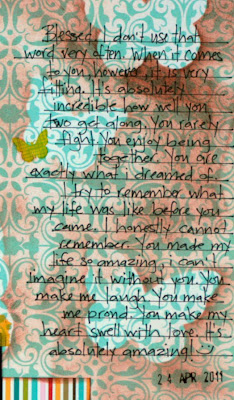 Blessed. I don't use that
word very often. When it comes
to you, however, it is very
fitting. It's absolutely
incredible how well you
two get along. You rarely
fight. You enjoy being
together. You are
exactly what i dreamed of.
I try to remember what
my life was like before you
came. I honestly cannot
remember. You made my
life so amazing, i can't
imagine it without you. You
make me laugh. You make
me proud. You make my
heart swell with love. It's
absolutely amazing!
24 APR 2011